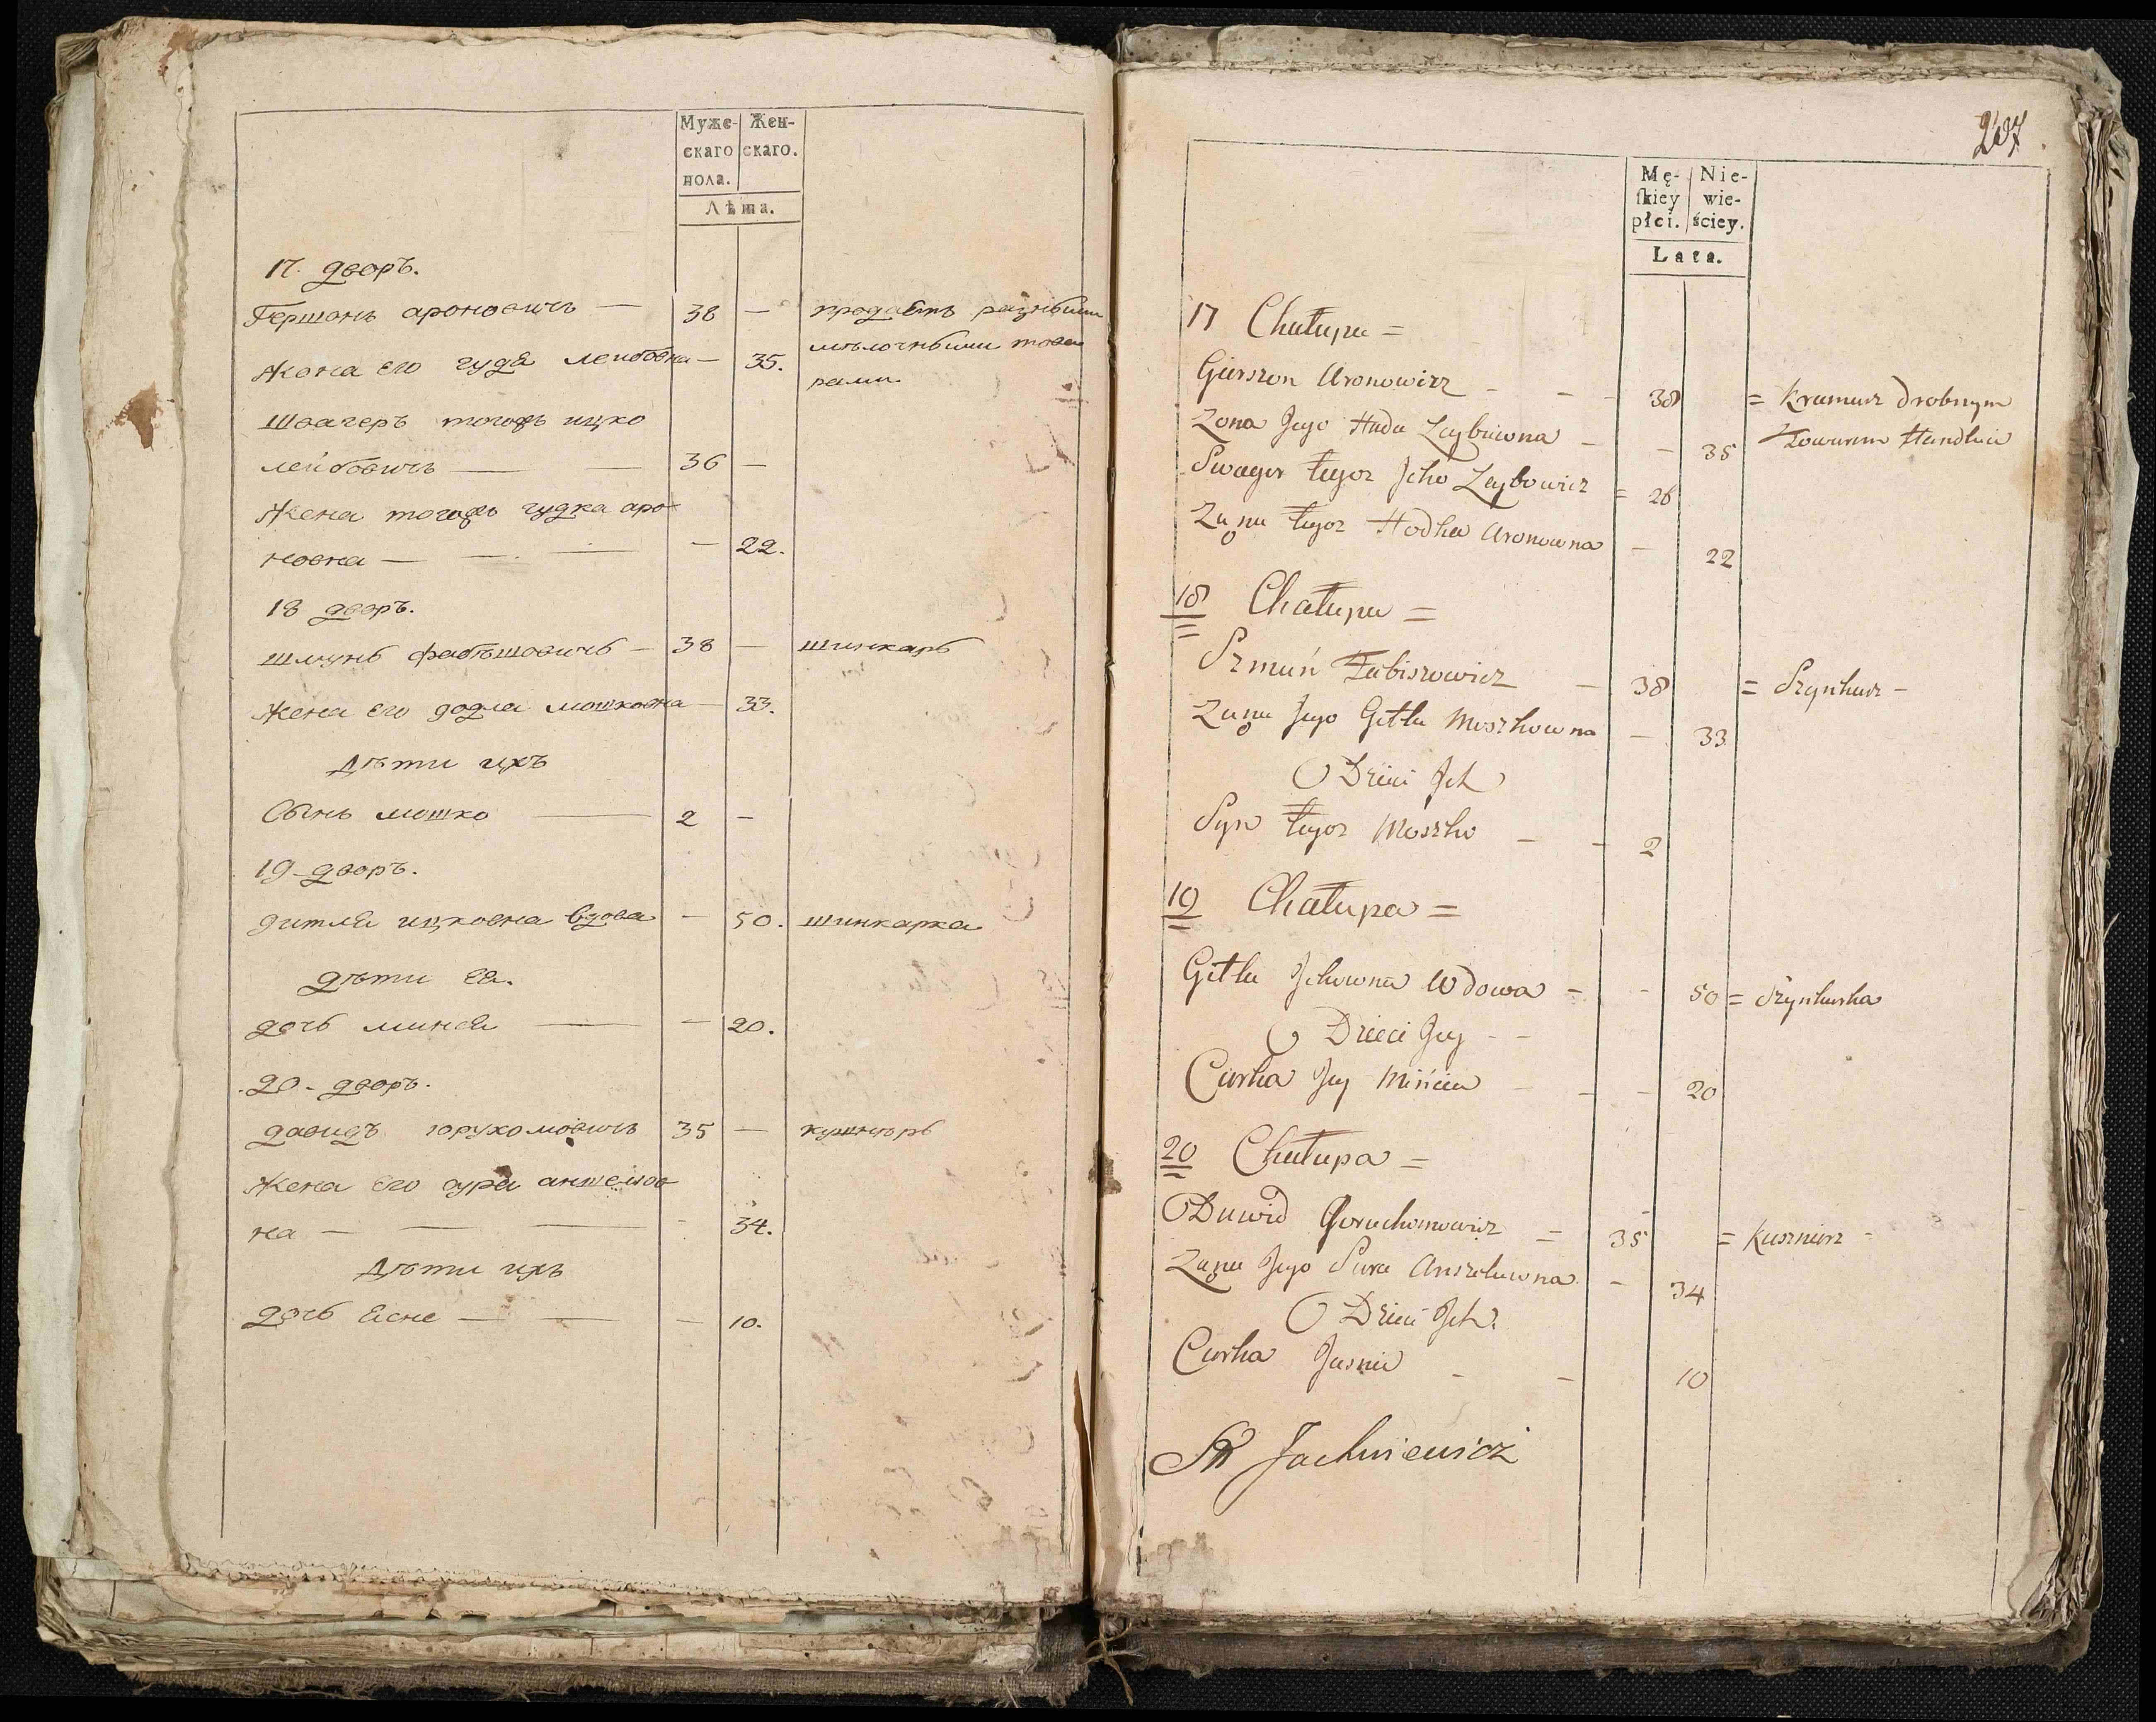 Муже-
скаго
пола.
Жен-
скаго.
Лѣта.
17. дворъ.
Гершонъ ароновичъ — 38 — продаетъ разными
жена его гудя леибовна — 35. мѣлочными това
рами
Швагеръ тогожъ ицко
леибовичъ — — 36 —
Жена тогожъ гудка аро
новна — — — — 22.
18 дворъ.
шмунь фабѣшовичь — 38 — шинкарь
жена его додля мошковна — 33.
Дѣти ихъ
Сынъ мошко — 2 —
19 - дворъ.
дитля ицковна вдова — 50. шинкарка
дѣти ея.
дочь минея — — 20.
20 - дворъ.
давидъ горухомовичъ 35 — кушнѣрь
жена его сура аншелов
на — — — - 34.
Дѣти ихъ
Дочь Ясне — — — 10.
207
Mę-
ſkiey
płci.
Nie-
wie-
ściey.
Lata.
17 Chałupa =
Gierszon Aronowicz - - - 38 = Kramarz drobnym
Zona Jego Huda Leybowna - - 35 Towarem Handluie
Swager tegoz Icko Leybowicz = 26
Zona tegoz Hodka Aronowna - 22
18 Chałupa =
Szmuń Fabiszowicz - 38 = Szynkarz -
Zona Jego Gitla Moszkowna - 33
Dzieci Ich
Syn tegoz Moszko - - 2
19 Chałupa =
Gitla Ickowna Wdowa - - 50 = Szynkarka
Dzieci Jey - -
Curka Jey Mińcia - - - 20
20 Chałupa =
Dawid Goruchomowicz = 35 = Kusznierz -
Zona Jego Sura Anszelowna - 34
Dzieci Ich.
Curka Jasnie - - 10
Jachniewicz